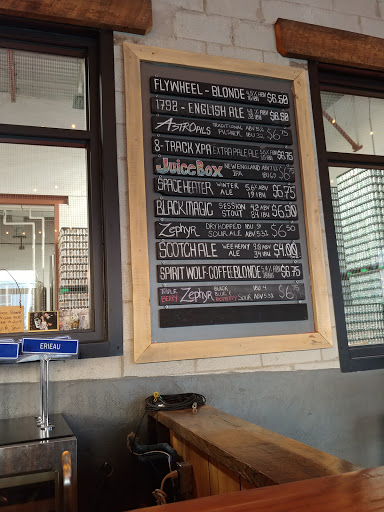 FLYWHEEL - BLONDE $6.50
1792 - ENGLISH ALE $6.50
ASTROPILS TRADITIONAL PILSNER $6.75
8-TRACK XPA EXTRA PALE ALE $6.75
JUICEBOX NEW ENGLAND IPA $6.75
SPACE HEATER WINTER ALE 5.6% ABV 19 IBU $6.75
BLACK MAGIC SESSION STOUT $6.50
ZEPHYR DRY HOPPED SOUR ALE $6.50
SCOTCH ALE WEE HEAVY ALE $4.00
SPIRIT WOLF COFFEE BLONDE $6.75
TRIPLE BERRY ZEPHYR SOUR $6.75
ERIEAU